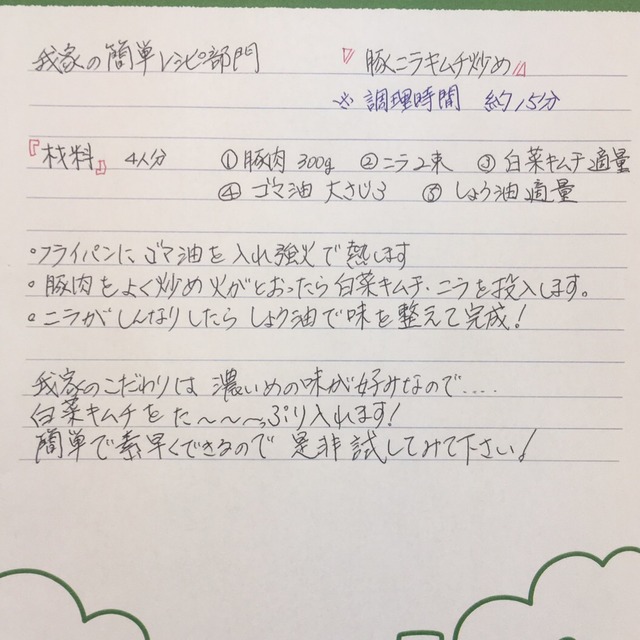 我家の簡単レシピ部門 『豚ニラキムチ炒め』
※ 調理時間 約15分
『材料』 4人分 ① 豚肉 300g ② ニラ2束 ③ 白菜キムチ適量
④ ゴマ油 大さじ3 ⑤ しょう油適量
・フライパンにゴマ油を入れ強火で熱します
・豚肉をよく炒め火がとおったら白菜キムチ・ニラを投入します。
・ニラがしんなりしたらしょう油で味を整えて完成!
我家のこだわりは濃いめの味が好みなので.....
白菜キムチをた〜〜〜っぷり入れます!
簡単で素早くできるので是非試してみて下さい!